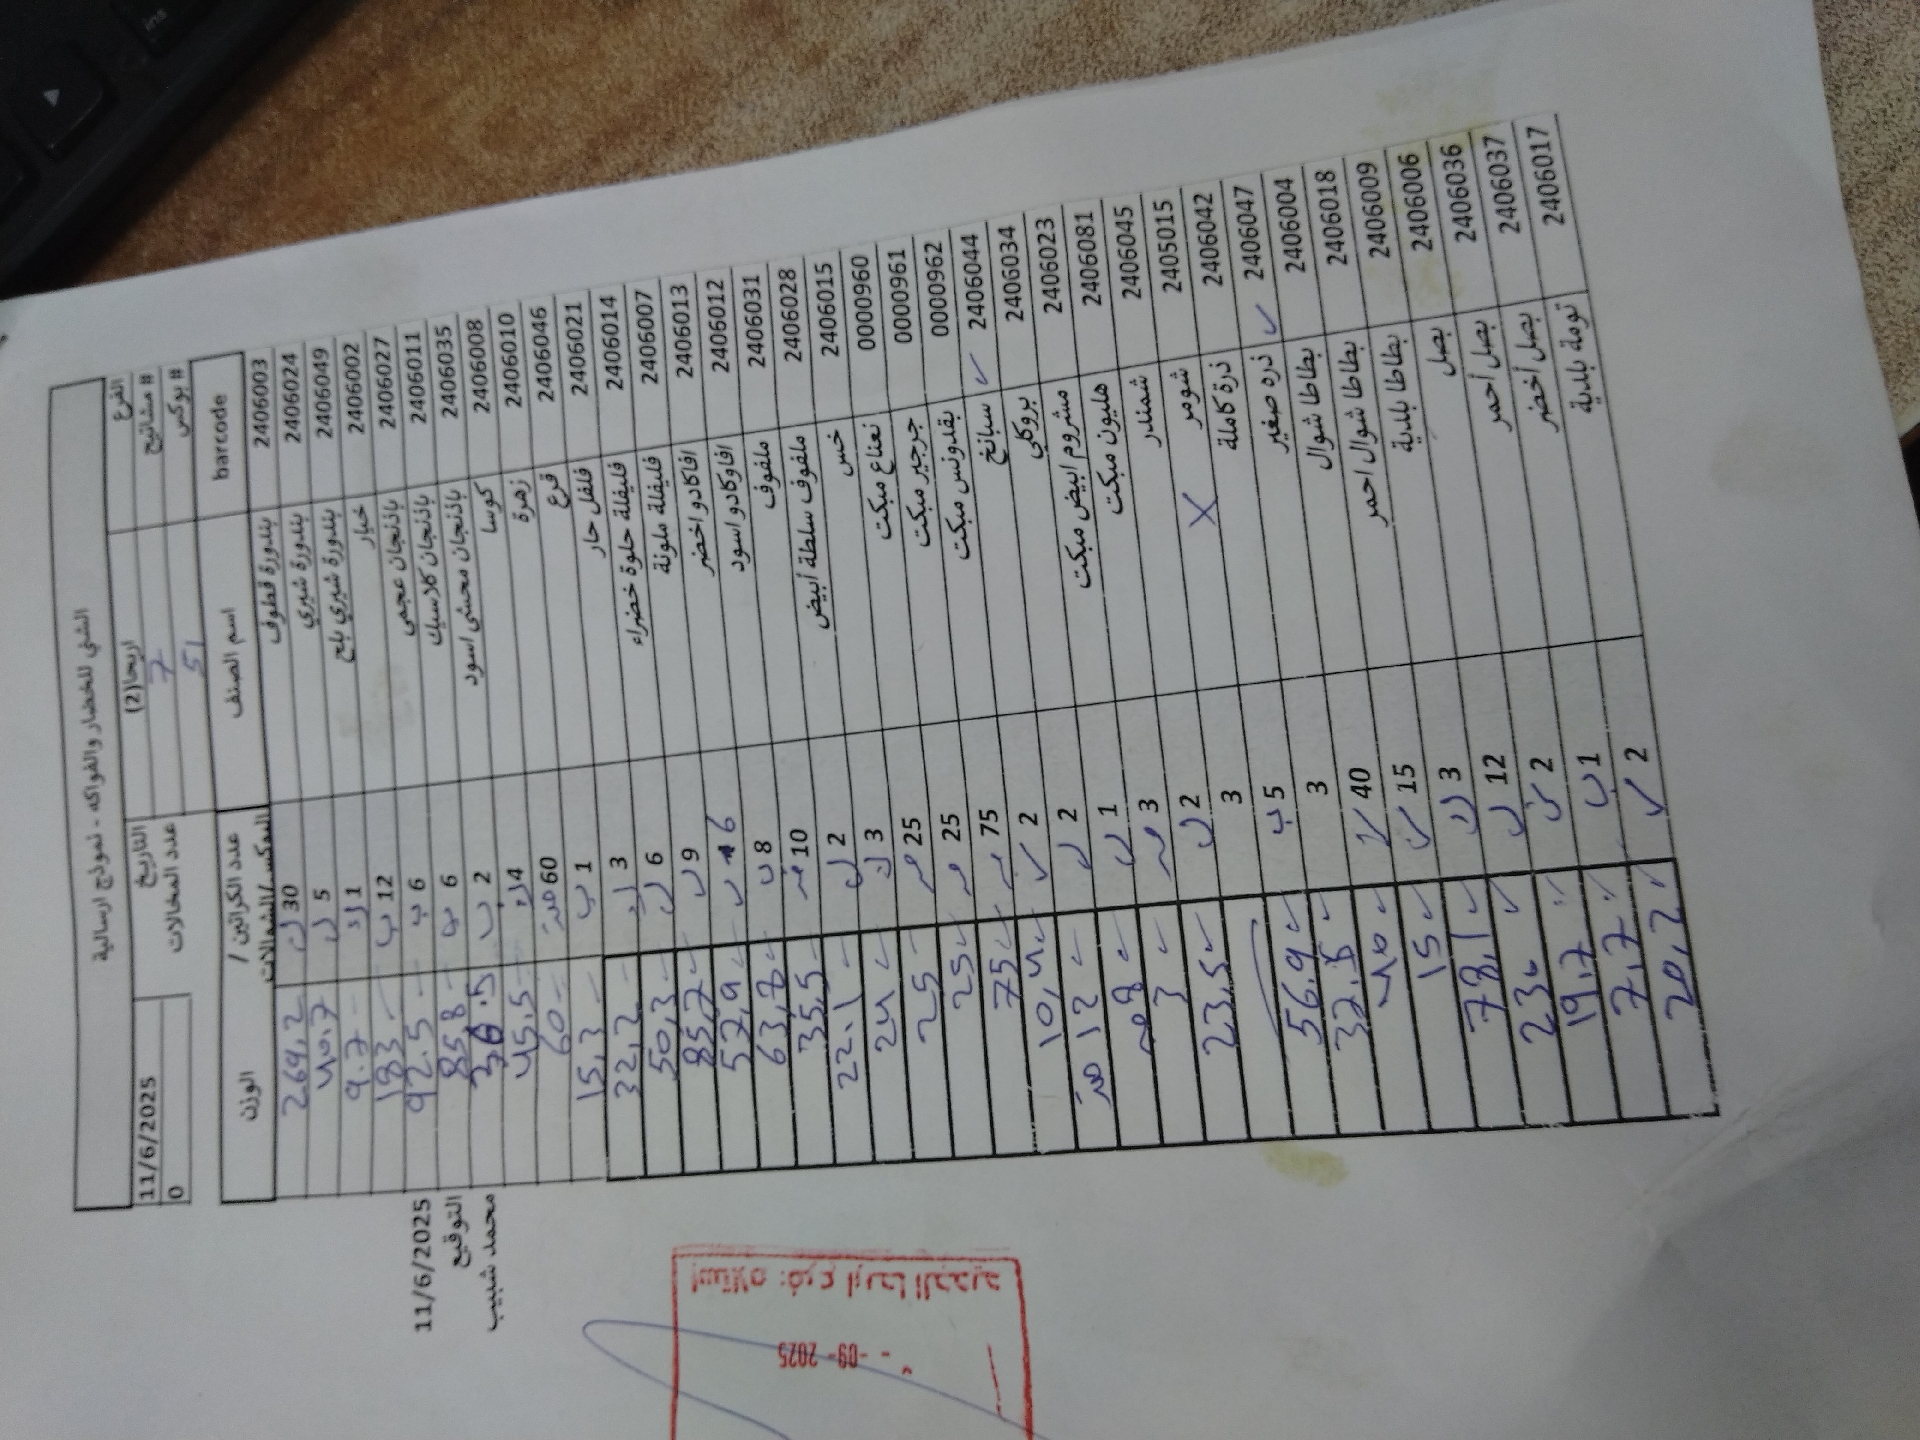 الشني للخضار والفواكه - نموذج ارسالية
الفرع اريحا(2) التاريخ 11/6/2025
# مشاتيح 7 عدد المخالات 0
# بوكس 51
barcode اسم الصنف عدد الكراتين / البوكس/الشوالات الوزن
2406003 بندورة قطوف 30 269,2
2406024 بندورة شيري 5 40.7
2406049 بندورة شيري بلح 1 9.7
2406002 خيار 12 183
2406027 باذنجان عجمي 6 92.5
2406011 باذنجان كلاسيك 6 85,8
2406035 باذنجان محشي اسود 2
2406008 كوسا 4 45,5
2406010 زهرة 60 60
2406046 قرع 1 15,3
2406021 فلفل حار 3 32,2
2406014 فليفلة حلوة خضراء 6 50,3
2406007 فليفلة ملونة 9 85,7
2406013 افاكادو اخضر 6 57,9
2406012 افاوكادو اسود 8 63,7
2406031 ملفوف 10 35,5
2406028 ملفوف سلطة أبيض 2 22.1
2406015 خس 3 24
0000960 نعناع مبكت 25 25
0000961 جرجير مبكت 25 25
0000962 بقدونس مبكت 75 75
2406044 سبانخ 2 10,4
2406034 بروكلي 2 12
2406023 مشروم ابيض مبكت 1 8
2406081 هليون مبكت 3 3
2406045 شمندر 2 23,5
2405015 شومر 3
2406042 ذرة كاملة 5 56,9
2406047 ذره صغير 3 37.5
2406004 بطاطا شوال 40 40
2406018 بطاطا شوال احمر 15 15
2406009 بطاطا بلدية 3 78,1
2406006 بصل 12 23
2406036 بصل أحمر 2 19,7
2406037 بصل أخضر 1 7,7
2406017 تومة بلدية 2 20,2
11/6/2025
التوقيع
محمد شبيب
إستلام: فرع اريحا الجديد
-09-2025